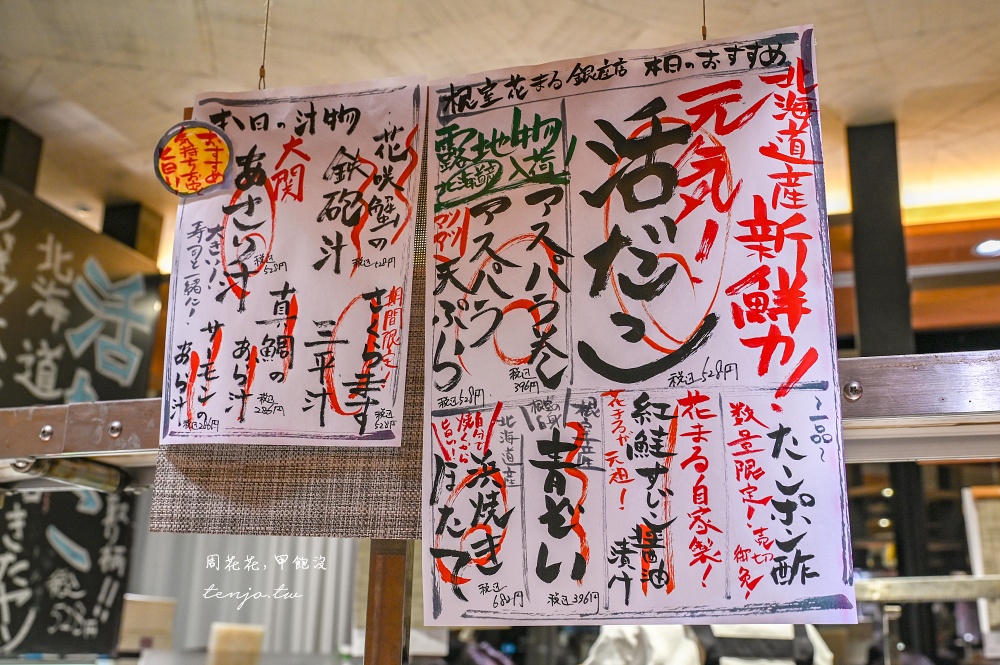 根室花まる 銀座店 本日のおすすめ
北海道産新鮮力!
元気!
活だこ
税込528円
露地物入荷!
北海道
アスパラ巻
税込396円
アスパラ
天ぷら
税込528円
~一品~
たこポン酢
数量限定!売切御免
花まる自家製!
紅鮭すじこ醤油漬け
花まるが元祖!
根室産
青ぞい
税込396円
北海道産
浜焼き
ほたて
自分で焼くから旨い!
税込682円
本日の汁物
おすすめ
花咲蟹の
鉄砲汁
税込528円
大関
あさり汁
税込528円
大きい!
寿司と一緒に!
期間限定!
さくらます
三平汁
税込528円
真鯛の
あら汁
税込286円
サーモンの
あら汁
税込286円
北海道
活
528円
周花花,甲飽沒
tenjo.tw